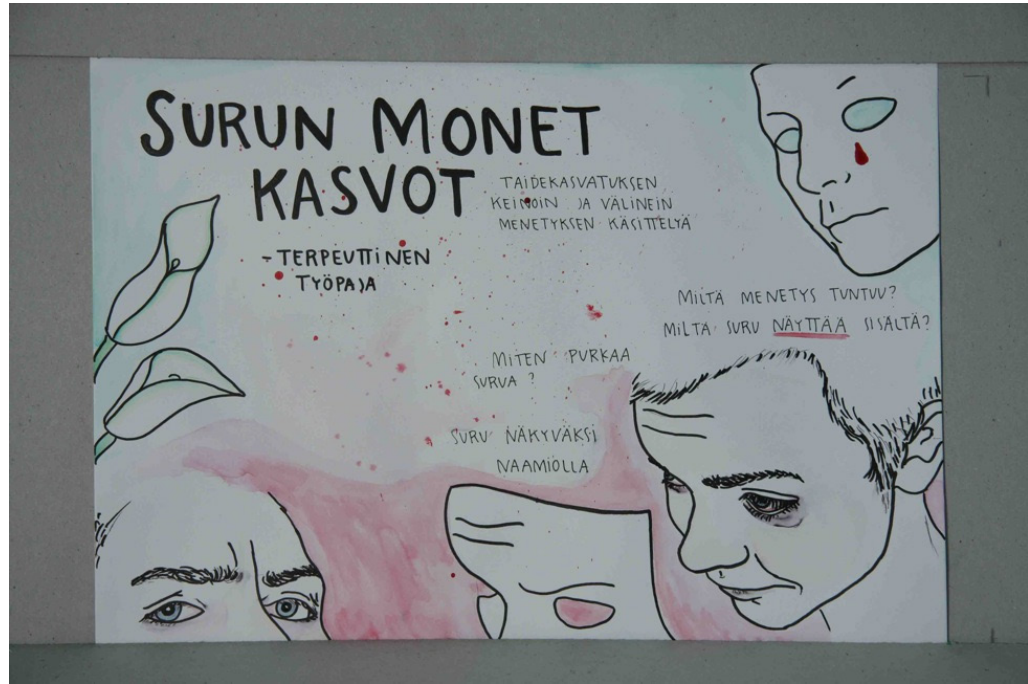 SURUN MONET
KASVOT
TAIDEKASVATUKSEN
KEINOIN JA VÄLINEIN
MENETYKSEN KÄSITTELYÄ
- TERPEUTTINEN
TYÖPAJA
MILTÄ MENETYS TUNTUU?
MILTÄ SURU NÄYTTÄÄ SISÄLTÄ?
MITEN PURKAA
SURUA ?
SURU NÄKYVÄKSI
NAAMIOLLA